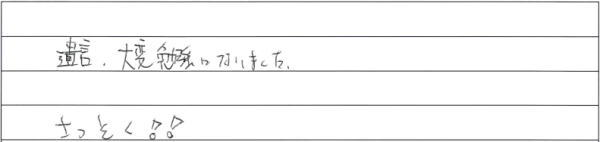 遺言、大変勉強になりました。
さっそく!!